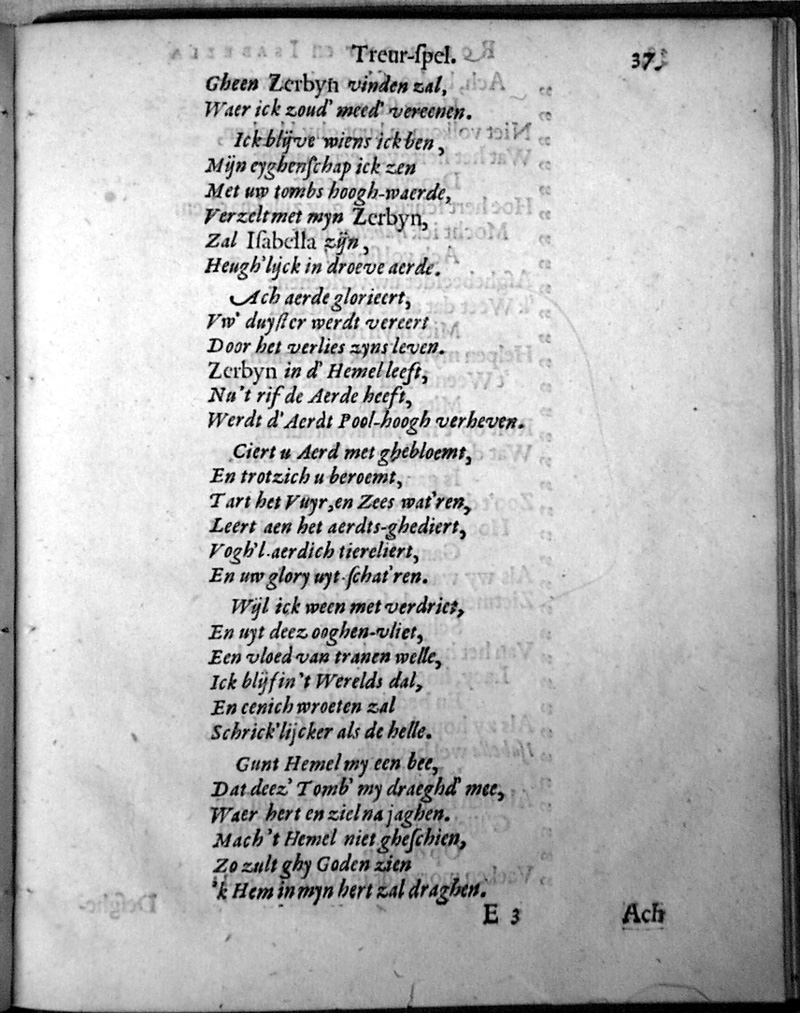 Treur-ſpel. 37.
Gheen Zerbyn vinden zal,
Waer ick zoud' meed' vereenen.
Ick blijve wiens ick ben,
Mijn eyghenſchap ick zen
Met uw tombs hoogh-waerde,
Verzelt met myn Zerbyn,
Zal Iſabella zijn,
Heugh'lijck in droeve aerde.
Ach aerde glorieert,
Vw' duyſter werdt vereert
Door het verlies zyns leven.
Zerbyn in d' Hemel leeft,
Nu 't rif de Aerde heeft,
Werdt d'Aerdt Pool-hoogh verheven.
Ciert u Aerd met ghebloemt,
En trotzich u beroemt,
Tart het Vuyr, en Zees wat'ren,
Leert aen het aerdts-ghediert,
Vogh'l-aerdich tiereliert,
En uw glory uyt-ſchat'ren.
Wijl ick ween met verdriet,
En uyt deez ooghen-vliet,
Een vloed van tranen welle,
Ick blijf in 't Werelds dal,
En eenich wroeten zal
Schrick'lijcker als de helle.
Gunt Hemel my een bee,
Dat deez' Tomb' my draeghd' mee,
Waer hert en ziel na jaghen.
Mach 't Hemel niet gheſchien,
Zo zult ghy Goden zien
'k Hem in myn hert zal draghen.
E 3 Ach